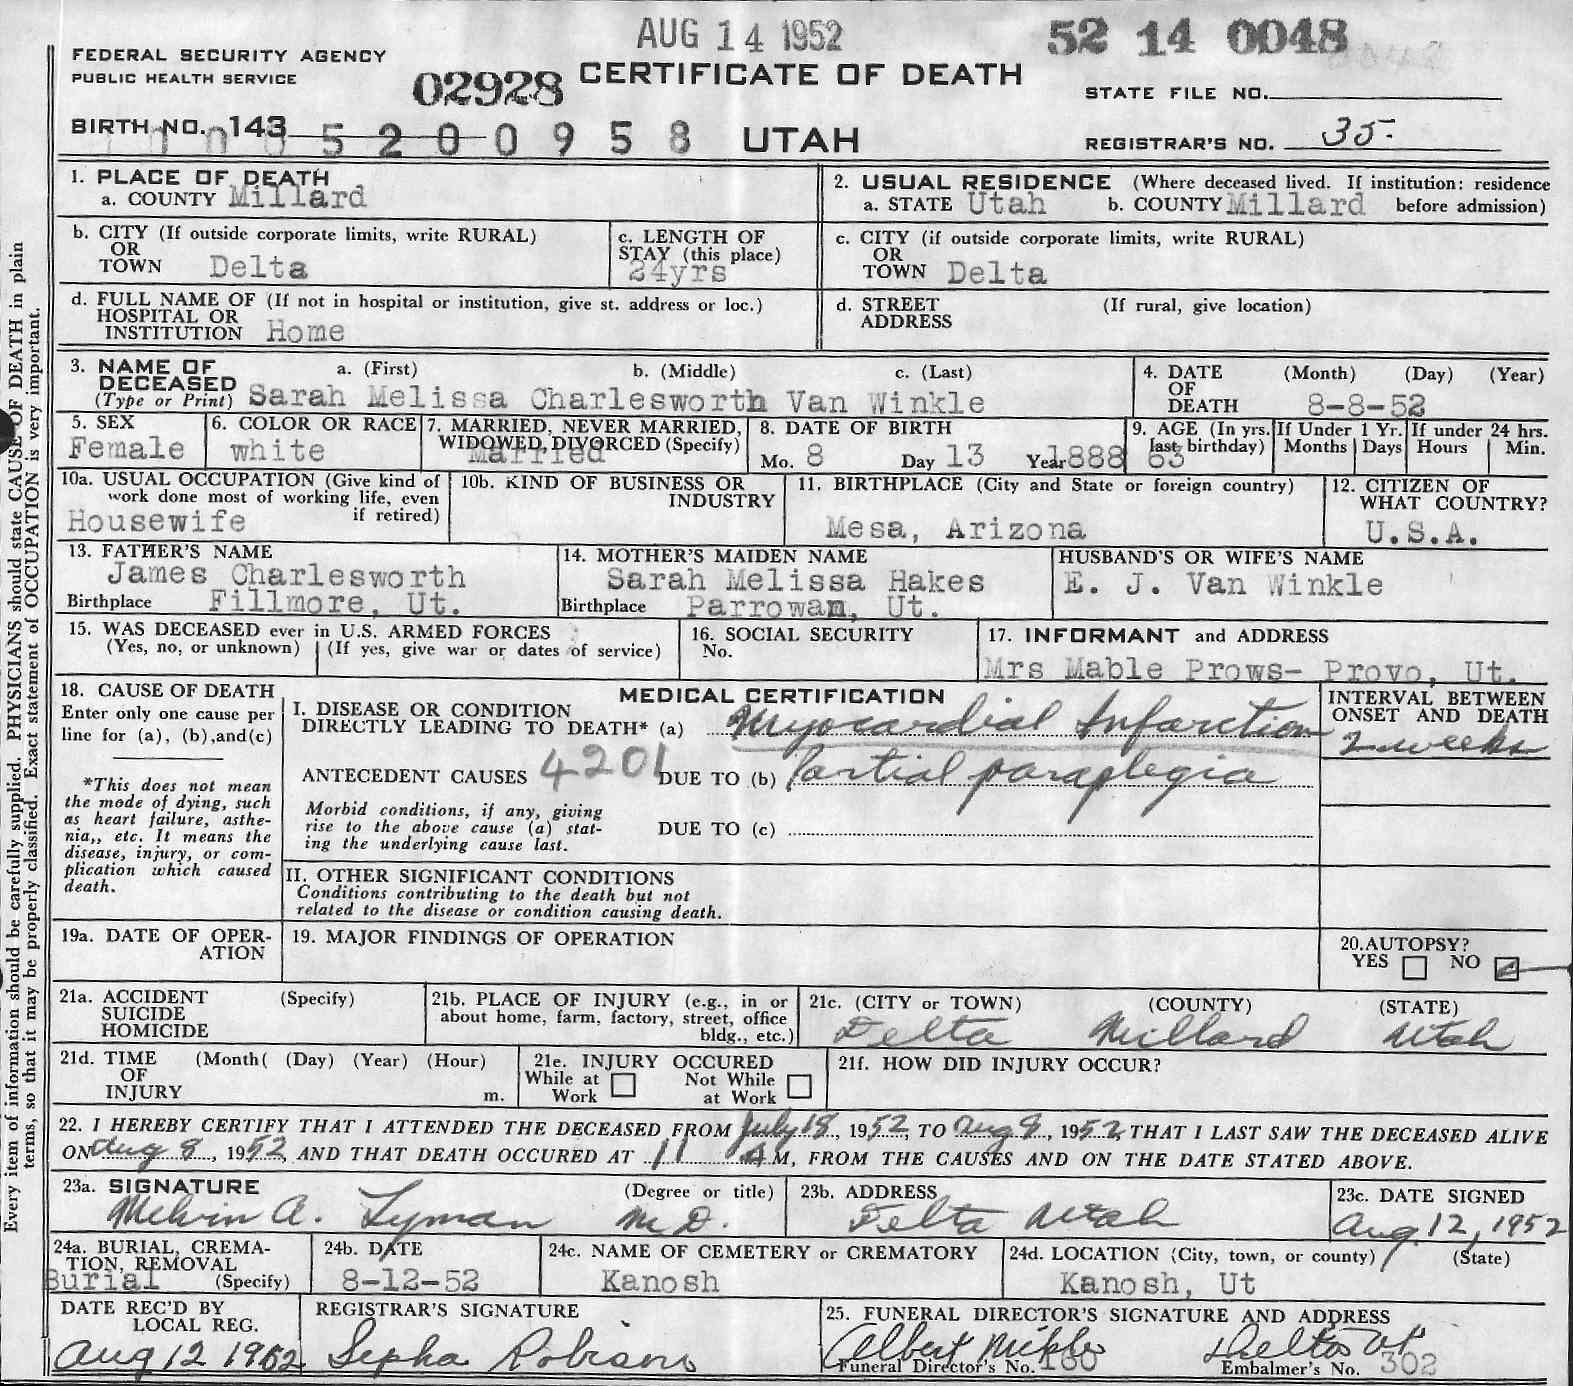 AUG 14 1952
52 14 0048
FEDERAL SECURITY AGENCY
PUBLIC HEALTH SERVICE
02928
CERTIFICATE OF DEATH
STATE FILE NO.
BIRTH NO. 143
5 2 0 0 9 5 8
UTAH
REGISTRAR'S NO. 35.
1. PLACE OF DEATH
a. COUNTY Millard
2. USUAL RESIDENCE (Where deceased lived. If institution: residence
a. STATE Utah b. COUNTY Millard before admission)
b. CITY (If outside corporate limits, write RURAL)
OR
TOWN Delta
c. LENGTH OF
STAY (this place)
24yrs
c. CITY (if outside corporate limits, write RURAL)
OR
TOWN Delta
d. FULL NAME OF (If not in hospital or institution, give st. address or loc.)
HOSPITAL OR
INSTITUTION Home
d. STREET (If rural, give location)
ADDRESS
3. NAME OF a. (First) b. (Middle) c. (Last)
DECEASED
(Type or Print) Sarah Melissa Charlesworth Van Winkle
4. DATE (Month) (Day) (Year)
OF
DEATH 8-8-52
5. SEX
Female
6. COLOR OR RACE
white
7. MARRIED, NEVER MARRIED,
WIDOWED, DIVORCED (Specify)
Married
8. DATE OF BIRTH
Mo. 8 Day 13 Year 1888
9. AGE (In yrs.
last birthday)
63
If Under 1 Yr.
Months Days
If under 24 hrs.
Hours Min.
10a. USUAL OCCUPATION (Give kind of
work done most of working life, even
if retired)
Housewife
10b. KIND OF BUSINESS OR
INDUSTRY
11. BIRTHPLACE (City and State or foreign country)
Mesa, Arizona
12. CITIZEN OF
WHAT COUNTRY?
U.S.A.
13. FATHER'S NAME
James Charlesworth
Birthplace Fillmore, Ut.
14. MOTHER'S MAIDEN NAME
Sarah Melissa Hakes
Birthplace Parrowan, Ut.
HUSBAND'S OR WIFE'S NAME
E. J. Van Winkle
15. WAS DECEASED ever in U.S. ARMED FORCES
(Yes, no, or unknown) (If yes, give war or dates of service)
16. SOCIAL SECURITY
No.
17. INFORMANT and ADDRESS
Mrs Mable Prows- Provo, Ut.
18. CAUSE OF DEATH
Enter only one cause per
line for (a), (b),and(c)
*This does not mean
the mode of dying, such
as heart failure, asthe-
nia,, etc. It means the
disease, injury, or com-
plication which caused
death.
MEDICAL CERTIFICATION
I. DISEASE OR CONDITION
DIRECTLY LEADING TO DEATH* (a) Myocardial Infarction
INTERVAL BETWEEN
ONSET AND DEATH
2 weeks
ANTECEDENT CAUSES 4201 DUE TO (b) Partial paraplegia
Morbid conditions, if any, giving
rise to the above cause (a) stat-
ing the underlying cause last.
DUE TO (c)
II. OTHER SIGNIFICANT CONDITIONS
Conditions contributing to the death but not
related to the disease or condition causing death.
19a. DATE OF OPER-
ATION
19. MAJOR FINDINGS OF OPERATION
20.AUTOPSY?
YES NO
21a. ACCIDENT (Specify)
SUICIDE
HOMICIDE
21b. PLACE OF INJURY (e.g., in or
about home, farm, factory, street, office
bldg., etc.)
21c. (CITY or TOWN) (COUNTY) (STATE)
Delta Millard Utah
21d. TIME (Month( (Day) (Year) (Hour)
OF
INJURY m.
21e. INJURY OCCURED
While at Work Not While at Work
21f. HOW DID INJURY OCCUR?
22. I HEREBY CERTIFY THAT I ATTENDED THE DECEASED FROM July 18, 1952, TO Aug 8, 1952, THAT I LAST SAW THE DECEASED ALIVE
ON Aug 8, 1952 AND THAT DEATH OCCURED AT 11 A M, FROM THE CAUSES AND ON THE DATE STATED ABOVE.
23a. SIGNATURE (Degree or title)
Melvin A. Lyman M.D.
23b. ADDRESS
Delta Utah
23c. DATE SIGNED
Aug 12, 1952
24a. BURIAL, CREMA-
TION, REMOVAL
Burial (Specify)
24b. DATE
8-12-52
24c. NAME OF CEMETERY or CREMATORY
Kanosh
24d. LOCATION (City, town, or county) (State)
Kanosh, Ut
DATE REC'D BY
LOCAL REG.
Aug 12 1952
REGISTRAR'S SIGNATURE
Sepha Robison
25. FUNERAL DIRECTOR'S SIGNATURE AND ADDRESS
Albert Nickle Delta Ut
Funeral Director's No. 160 Embalmer's No. 302
Every item of information should be carefully supplied. PHYSICIANS should state CAUSE OF DEATH in plain
terms, so that it may be properly classified. Exact statement of OCCUPATION is very important.